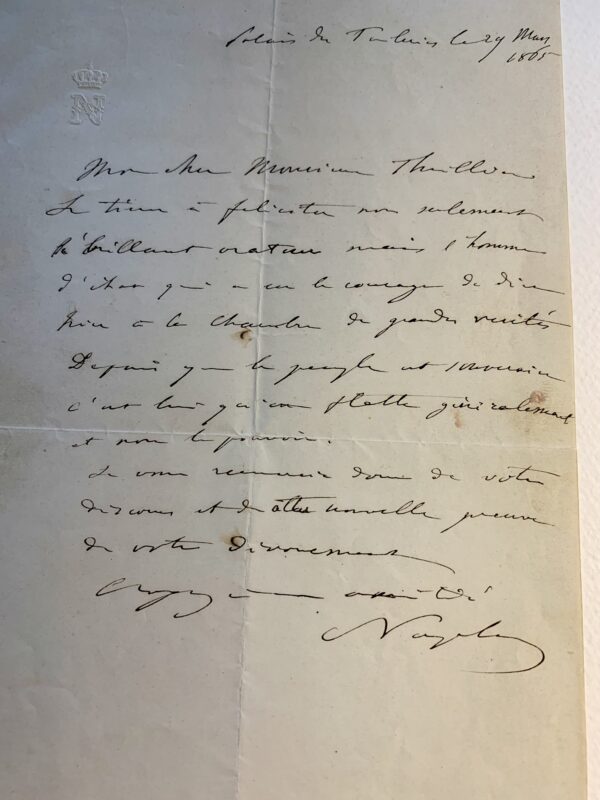 Palais des Tuileries le 29 Mars
1865
N
Mon cher Monsieur Thuillier
Je tiens à féliciter non seulement
le brillant orateur mais l'homme
d'état qui a eu le courage de dire
hier à la chambre de grandes vérités
Depuis que le peuple est souverain
c'est lui qu'on flatte généralement
et non le pouvoir.
Je vous remercie donc de votre
discours et de cette nouvelle preuve
de votre dévouement
Croyez à mon amitié
Napoléon